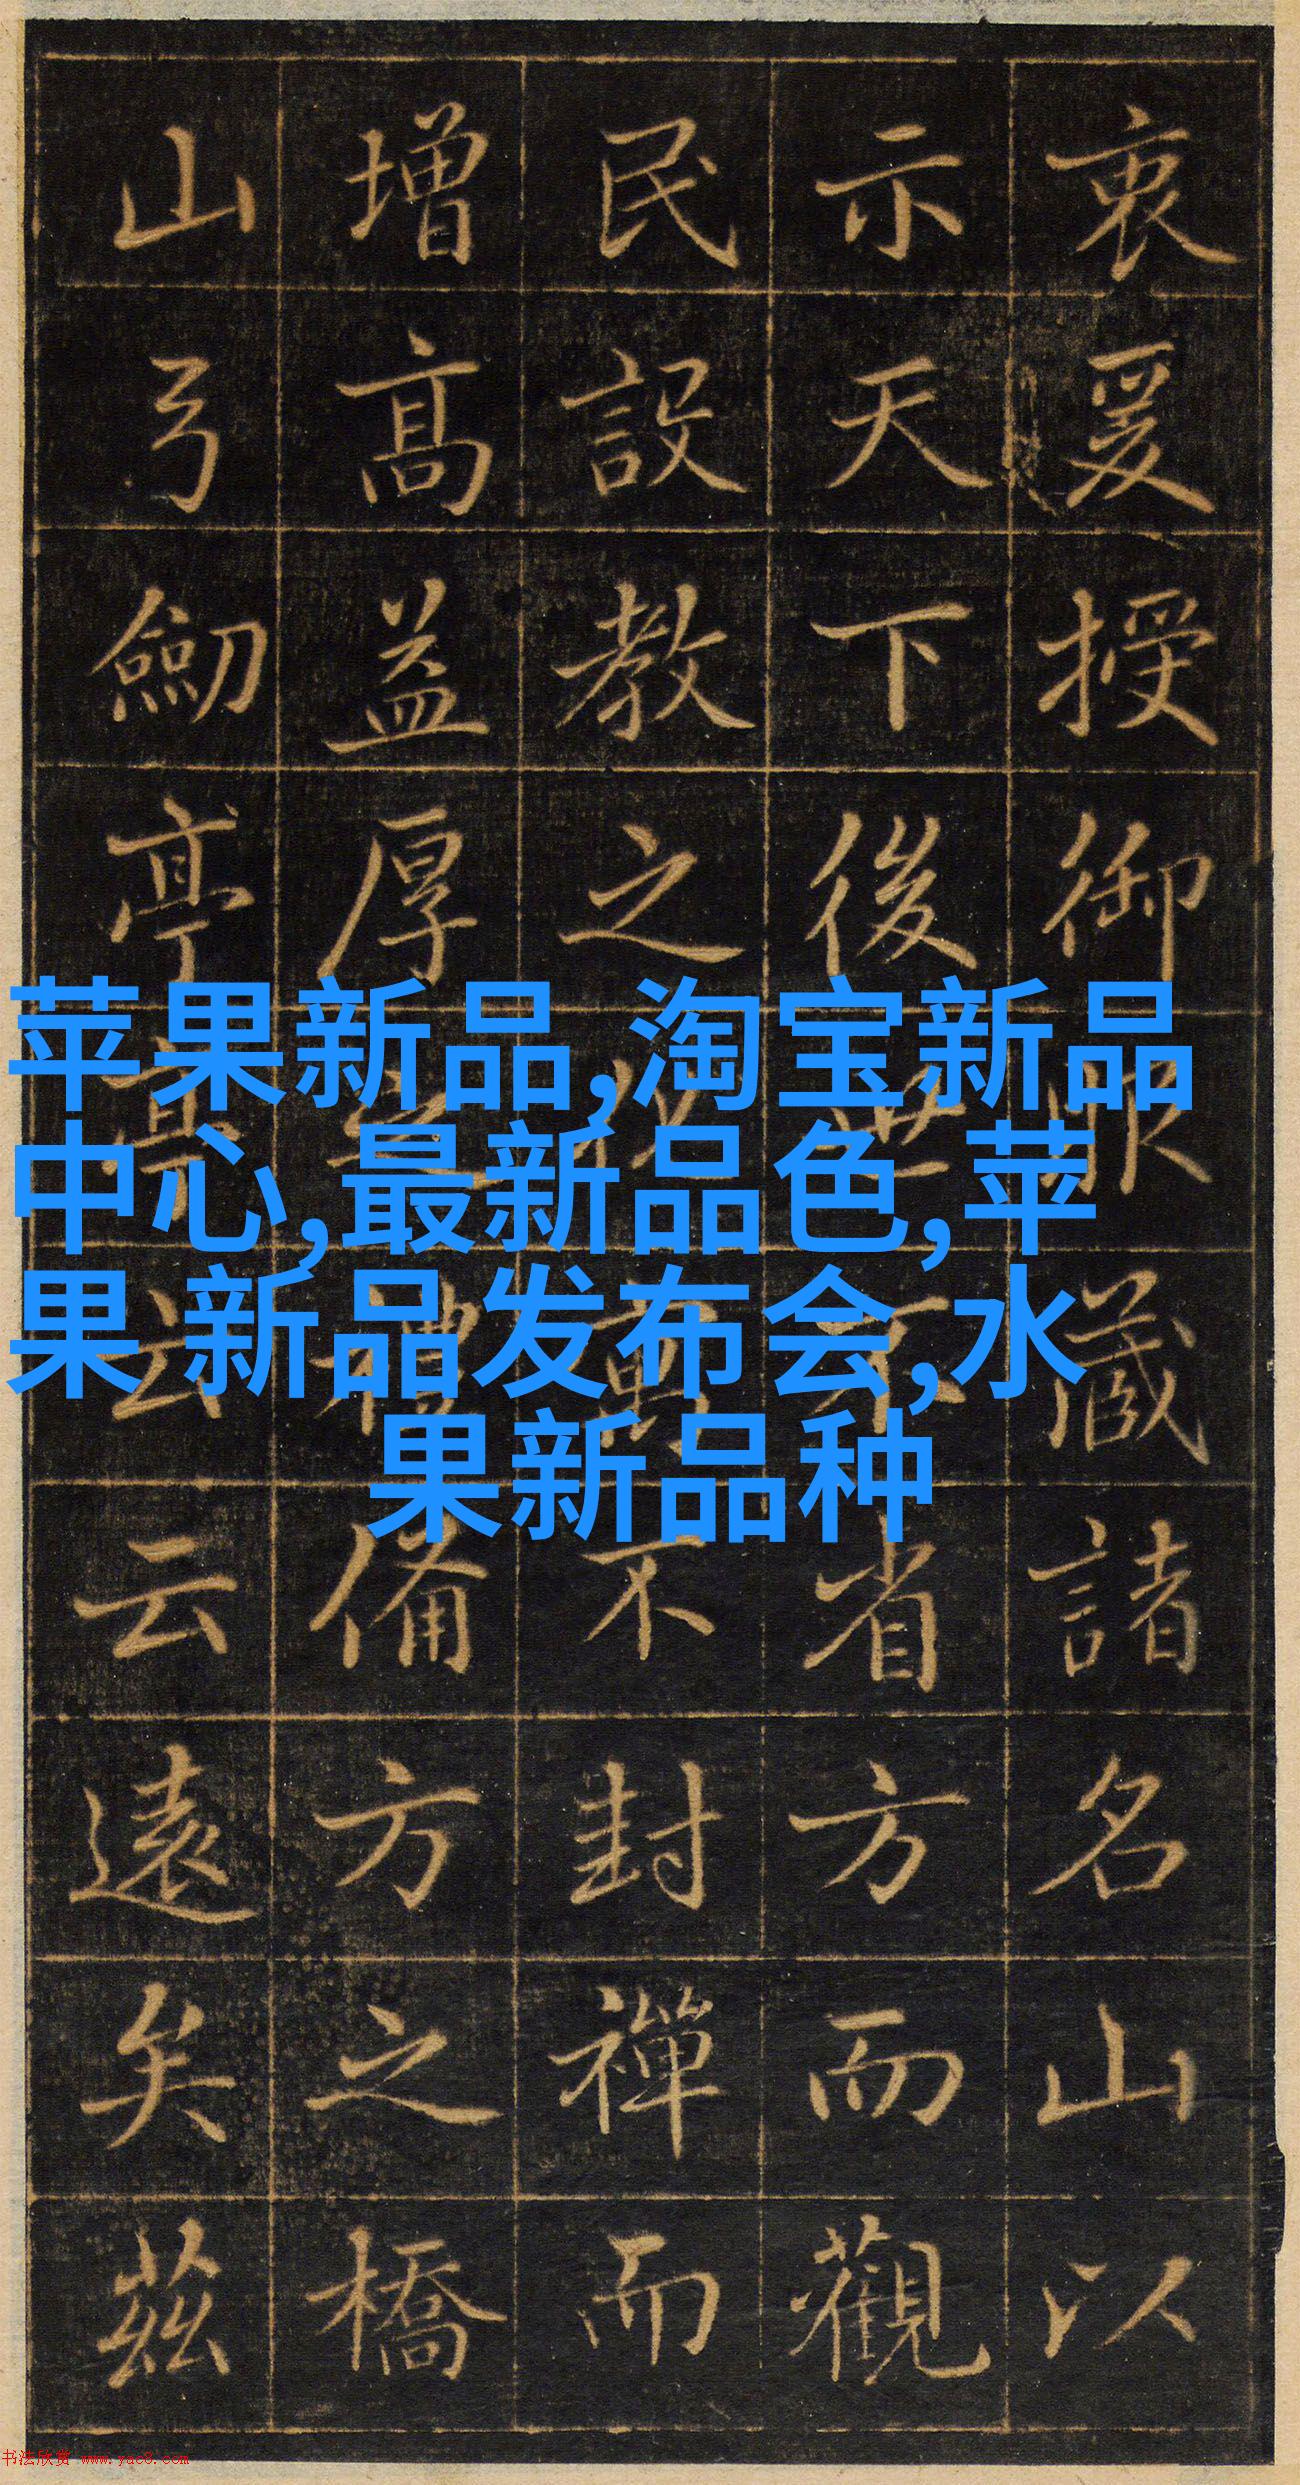 衷爰授御服藏諸名山以
示天下後世不省方而觀
民設教之不封禪而
增高益厚之禮備方之橋
山弓劒亭亭云云遠矣茲
苹果新品,淘宝新品
中心,最新品色,苹
果 新品发布会,水
果新品种
书法欣赏 www.yac8.com